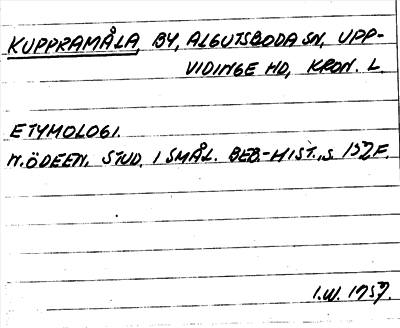 KUPPRAMÅLA, BY, ALGUTSBODA SN, UPP-
VIDINGE HD, KRON. L.
ETYMOLOGI.
N. ÖDEEN, STUD. I SMÅL. BEB-HIST., S. 152F.
I.W. 1957.